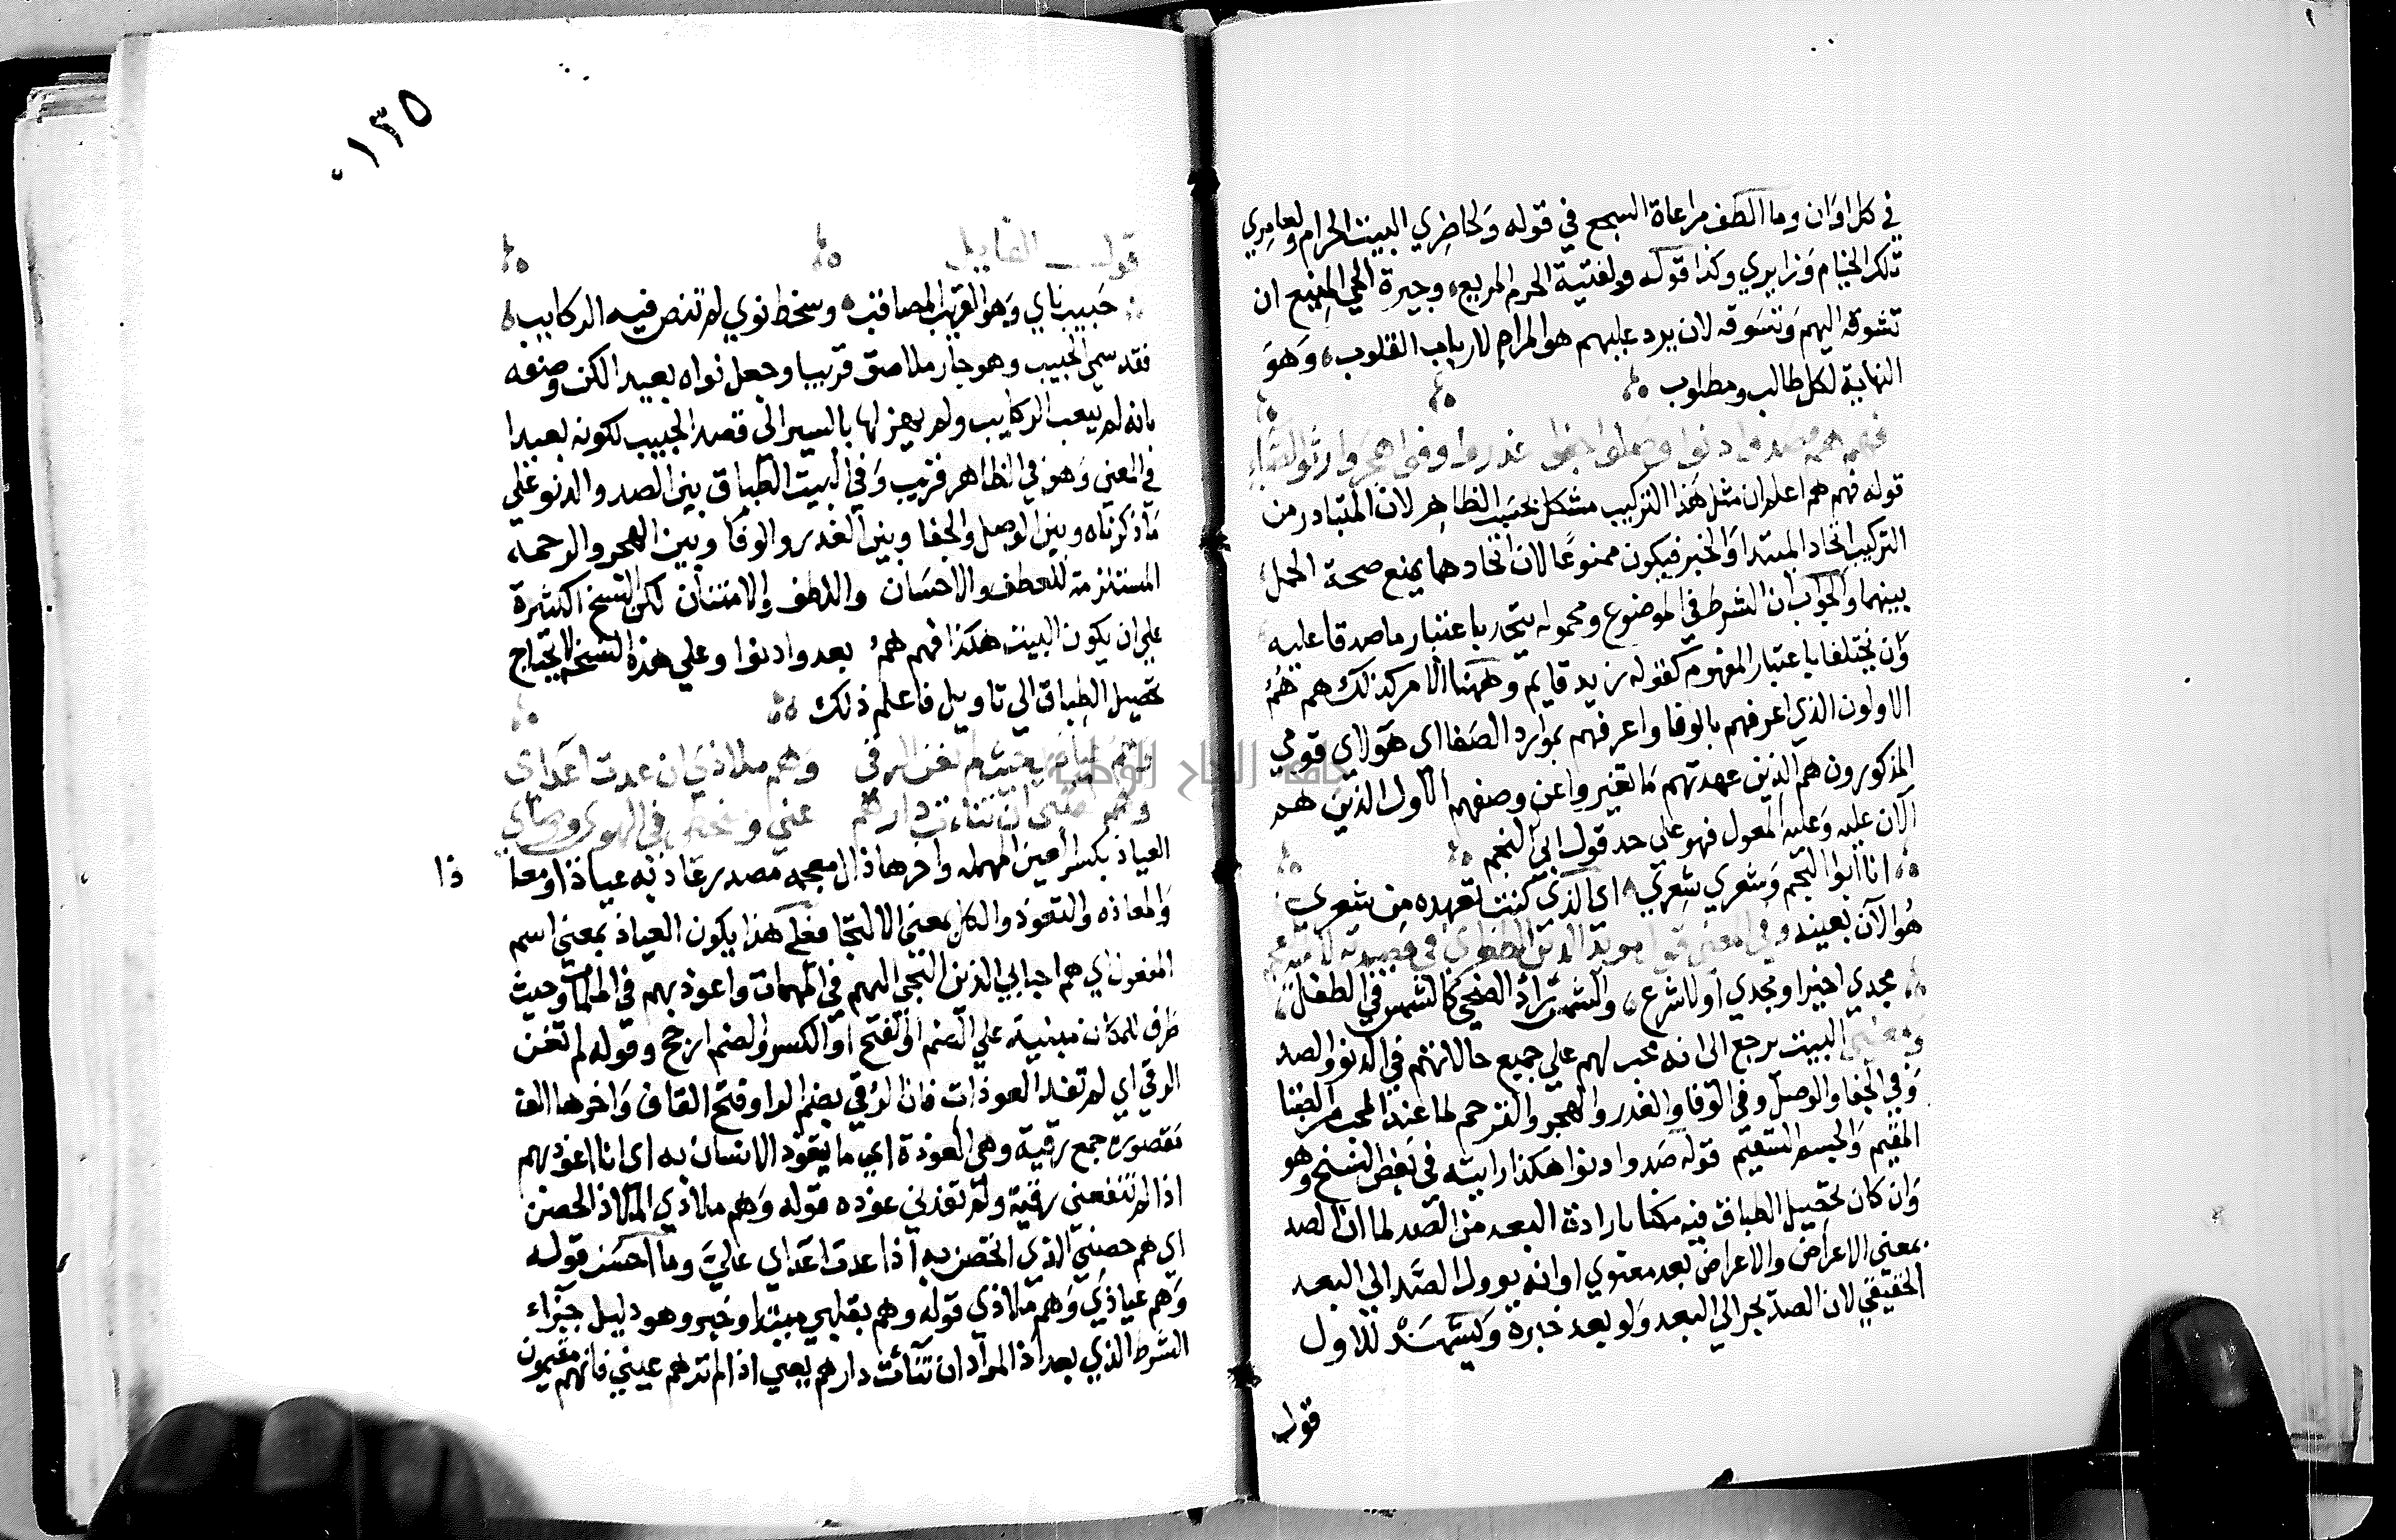 في كل اوان وما الطف مراعاة السجع في قوله ولحاضري البيت الحرام ولعامري
تلك الخيام وزايري وكذا قوله ولفتية الحرم المريع وجيرة الحي المنيع ان
تشوقه اليهم وتشوقه لان يرد عليهم هو المرام لارباب القلوب وهو
النهاية لكل طالب ومطلوب
فهم هم صدوا دنوا وصلوا جفوا غدروا وفوا هجروا رثوا لضنائي
قوله فهم هم اعلم ان مثل هذا التركيب مشكل بحسب الظاهر لان المتبادر من
التركيب اتحاد المبتدا والخبر فيكون ممنوعا لان اتحادهما يمنع صحة الحمل
بينهما والجواب ان الشرط في الموضوع ومحموله يتحد باعتبار ما صدقا عليه
وان يختلفا باعتبار المفهوم كقوله زيد قايم وههنا الامر كذلك هم هم
الاولون الذي اعرفهم بالوفا واعرفهم بموارد الصفا اي هولاي قومي
المذكورون هم الذين عهدتهم ما تغيروا عن وصفهم الاول الذين هم
الآن عليه وعليه المعول فهو على حد قول ابي النجم
انا ابو النجم وشعري شعري اي الذي كنت تعهده من شعري
هو الآن بعينه وفي المعنى قول مويد الدين الطغراي في قصيدته لامية العجم
مجدي اخيرا ومجدي اولا شرع والشمس راد الضحى كالشمس في الطفل
ومعنى البيت يرجع الى انه محب لهم علي جميع حالاتهم في الدنو والصد
وفي الجفا والوصل وفي الوفا والغدر والهجر والترحم لما عند المحب من الضنا
المقيم والجسم السقيم قوله صدوا دنوا هكذا رايته في بعض النسخ وهو
وان كان تحصيل الطباق فيه مكنا بارادة البعد من الصد لما ان الصد
بمعنى الاعراض والاعراض بعد معنوي او انه يوول الصد الي البعد
الحقيقي لان الصد يجر الي البعد ولو بعد خبرة ويشهد للاول
قول
١٣٥
قول القايل
حبيب ناي وهو القريب المصاقب وسخط نوي لم تنض فيه الركايب
فقد سمي الحبيب وهو جار ملاصق قريبا وجعل نواه بعيدا لكن وصفه
بانه لم يتعب الركايب ولم يهز لها بالسير الي قصد الحبيب لكونه بعيدا
في المعني وهو في الظاهر قريب وفي البيت الطباق بين الصد والدنو علي
ما ذكرناه وبين الوصل والجفا وبين الغدر والوفا وبين الهجر والرحمه
المستلزمة للعطف والاحسان واللطف والامتنان لكن النسخ الكثيرة
علي ان يكون البيت هكذا فهم هم بعدوا دنوا وعلي هذه النسخه لا يحتاج
تحصيل الطباق الي تاويل فاعلم ذلك
وهم عياذي حيث لم تغن الرقي وهم ملاذي ان عدت اعداي
وهم بقلبي ان تناءت دارهم عني وسخطي في الهوي ورضاي
العياذ بكسر العين المهمله واخرها ذال معجمه مصدر عاذ به عياذا ومعاذا
والمعاذه والتعوذ والكل بمعني الالتجا فعلي هذا يكون العياذ بمعني اسم
المفعول اي هم احبابي الذين التجي اليهم في المهمات واعوذ بهم في الملمات وحيث
ظرف للمكان مبنية علي الضم او الفتح او الكسر والضم ارجح وقوله لم تغن
الرقي اي لم تفد العوذات فان الرقي بضم الرا وفتح القاف واخرها الف
مقصوره جمع رقية وهي العوذة اي ما يتعوذ الانسان به اي انا اعوذ بهم
اذا لم تنفعني رقية ولم تفدني عوذه قوله وهم ملاذي الملاذ الحصن
اي هم حصني الذي اتحصن به اذا عدت اعداي علي وما احسن قوله
وهم عياذي وهم ملاذي قوله وهم بقلبي مبتدا وخبر وهو دليل جزاء
الشرط الذي بعد اذ المراد ان تنأت دارهم يعني اذا لم ترهم عيني فانهم مقيمون